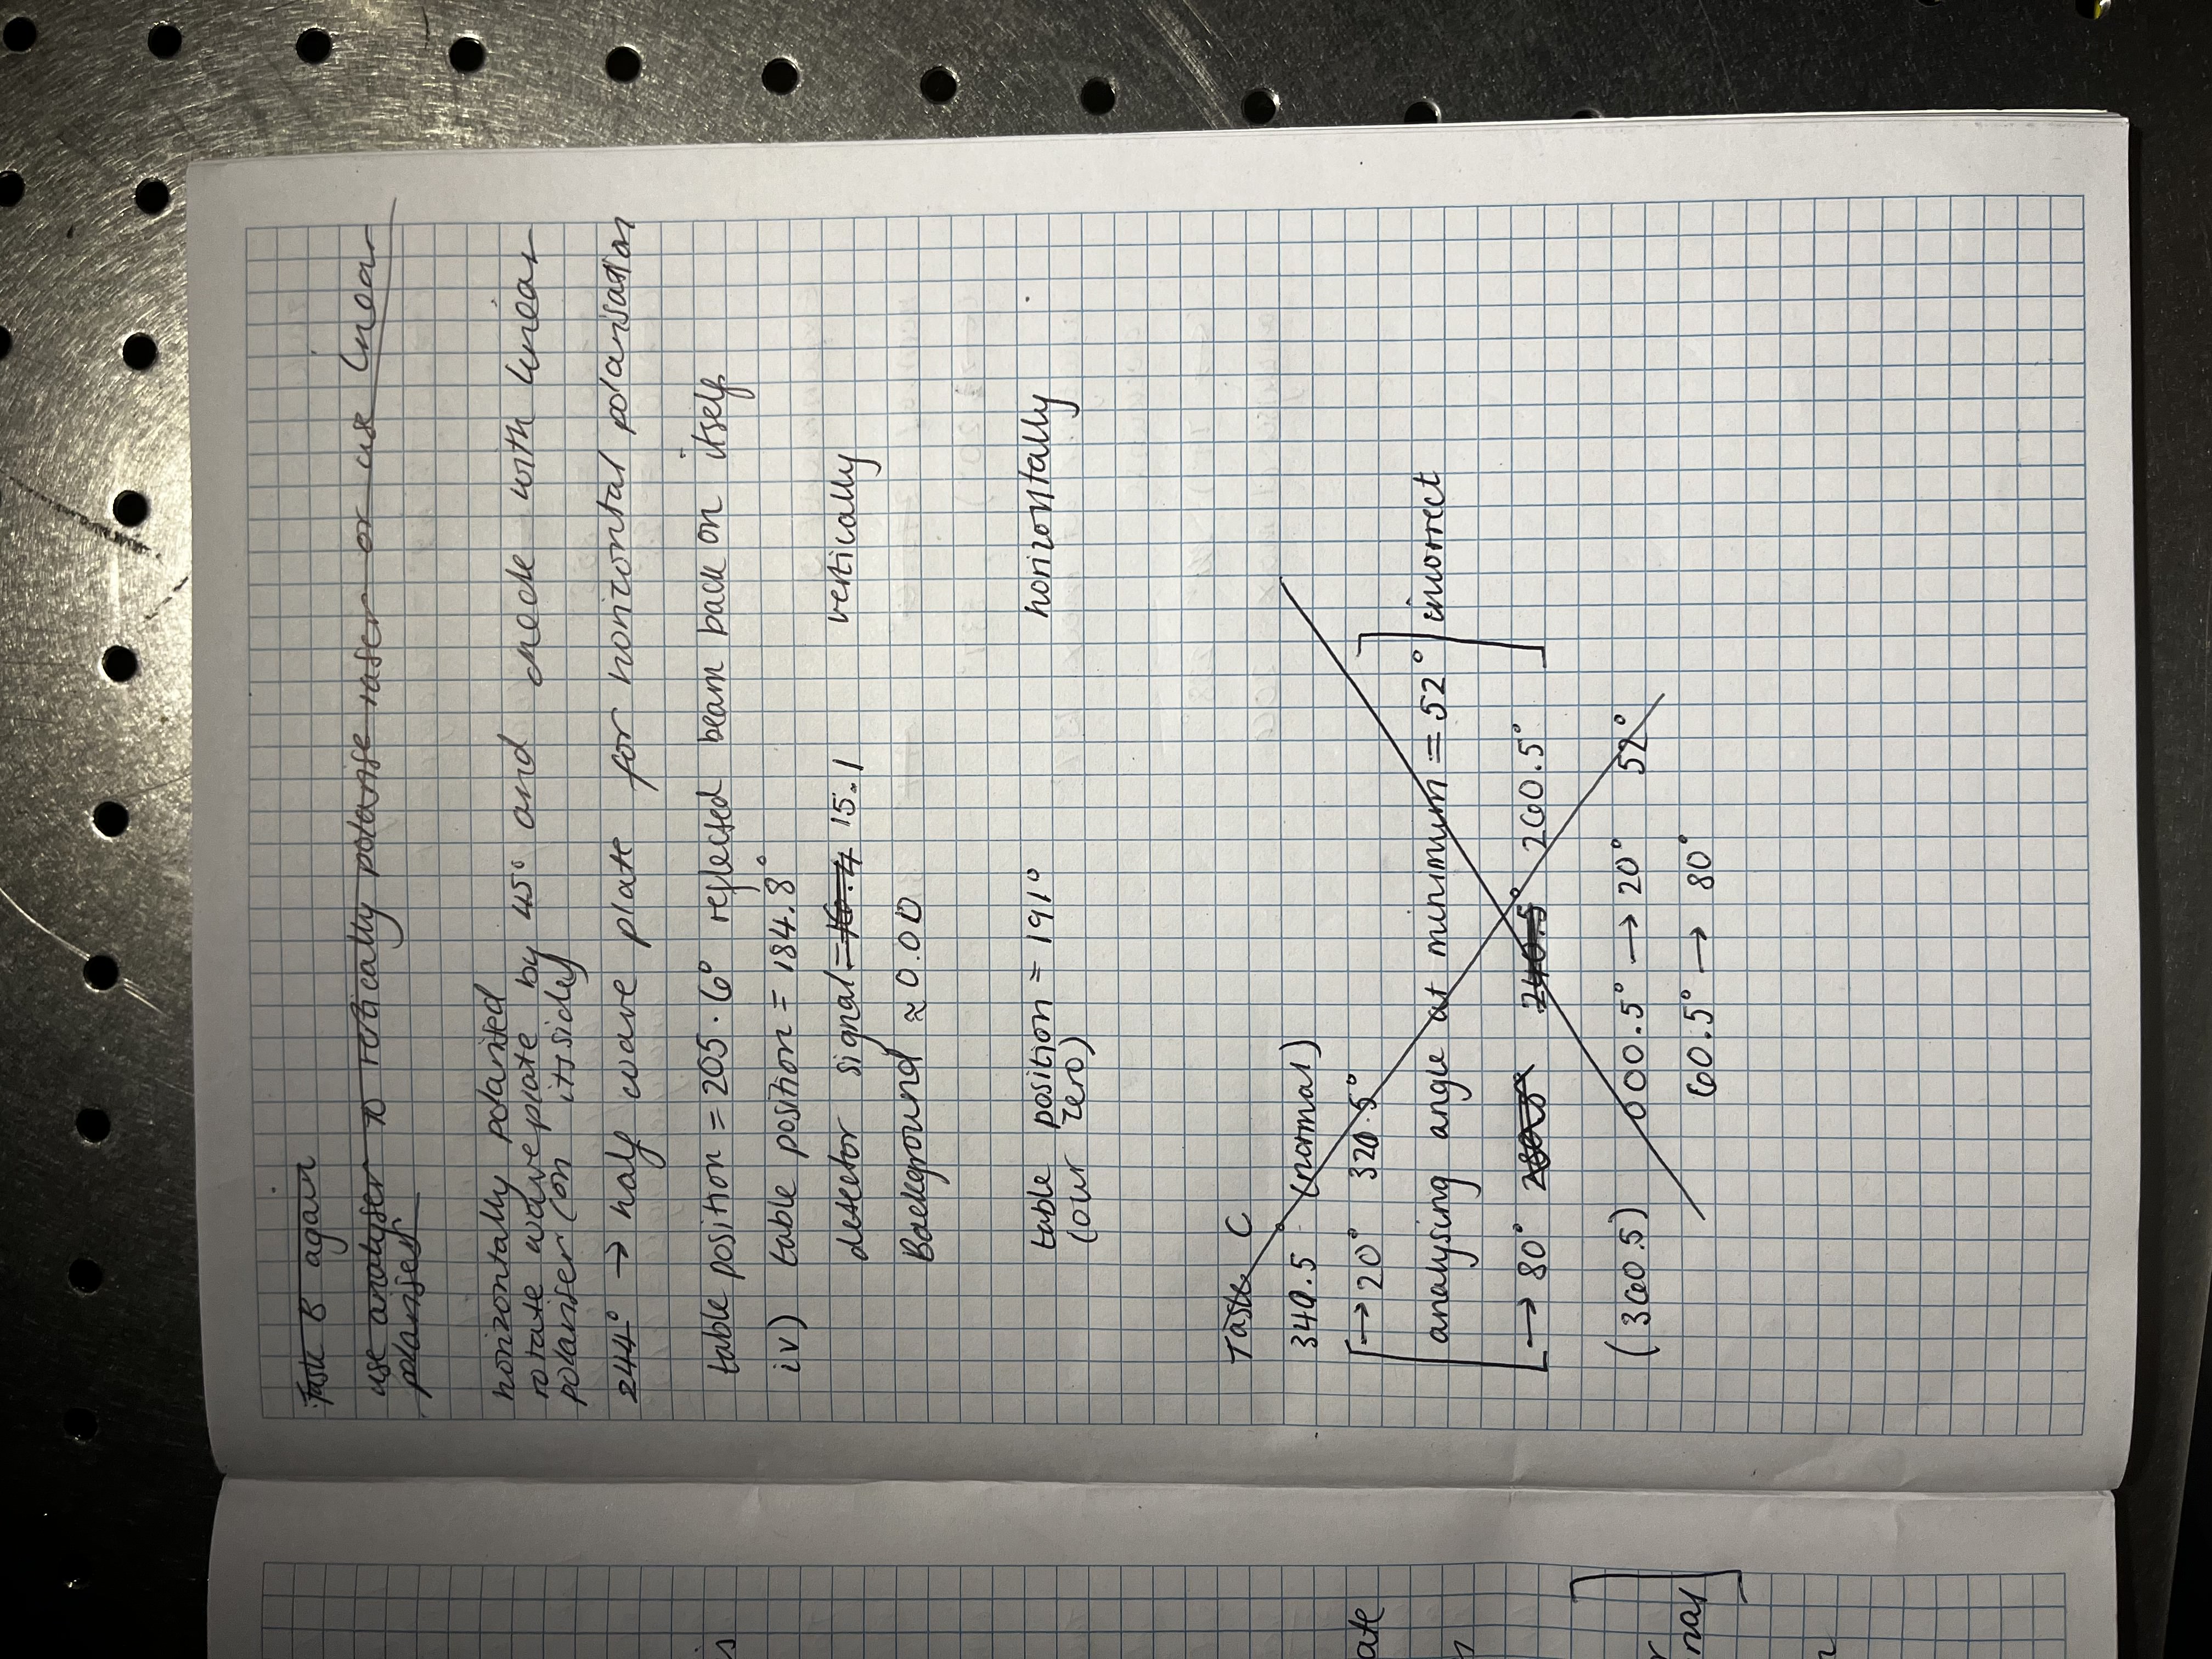 Task B again
use analyser to vertically polarise laser or use linear
polariser
horizontally polarised
rotate wave plate by 45° and check with linear
polariser (on its side)
244° → half wave plate for horizontal polarisation
table position = 205.6° reflected beam back on itself
iv) table position = 184.8°
detector signal = 16.4 15.1 vertically
Background ≈ 0.00
table position = 191° horizontally
(our zero)
Task C
340.5° (normal)
→ 20° 320.5°
analysing angle at minimum = 52° incorrect
→ 80° 280.5° 240.5° 260.5°
(360.5) 000.5° → 20° 52°
60.5° → 80°
is
ate
n
r
nal